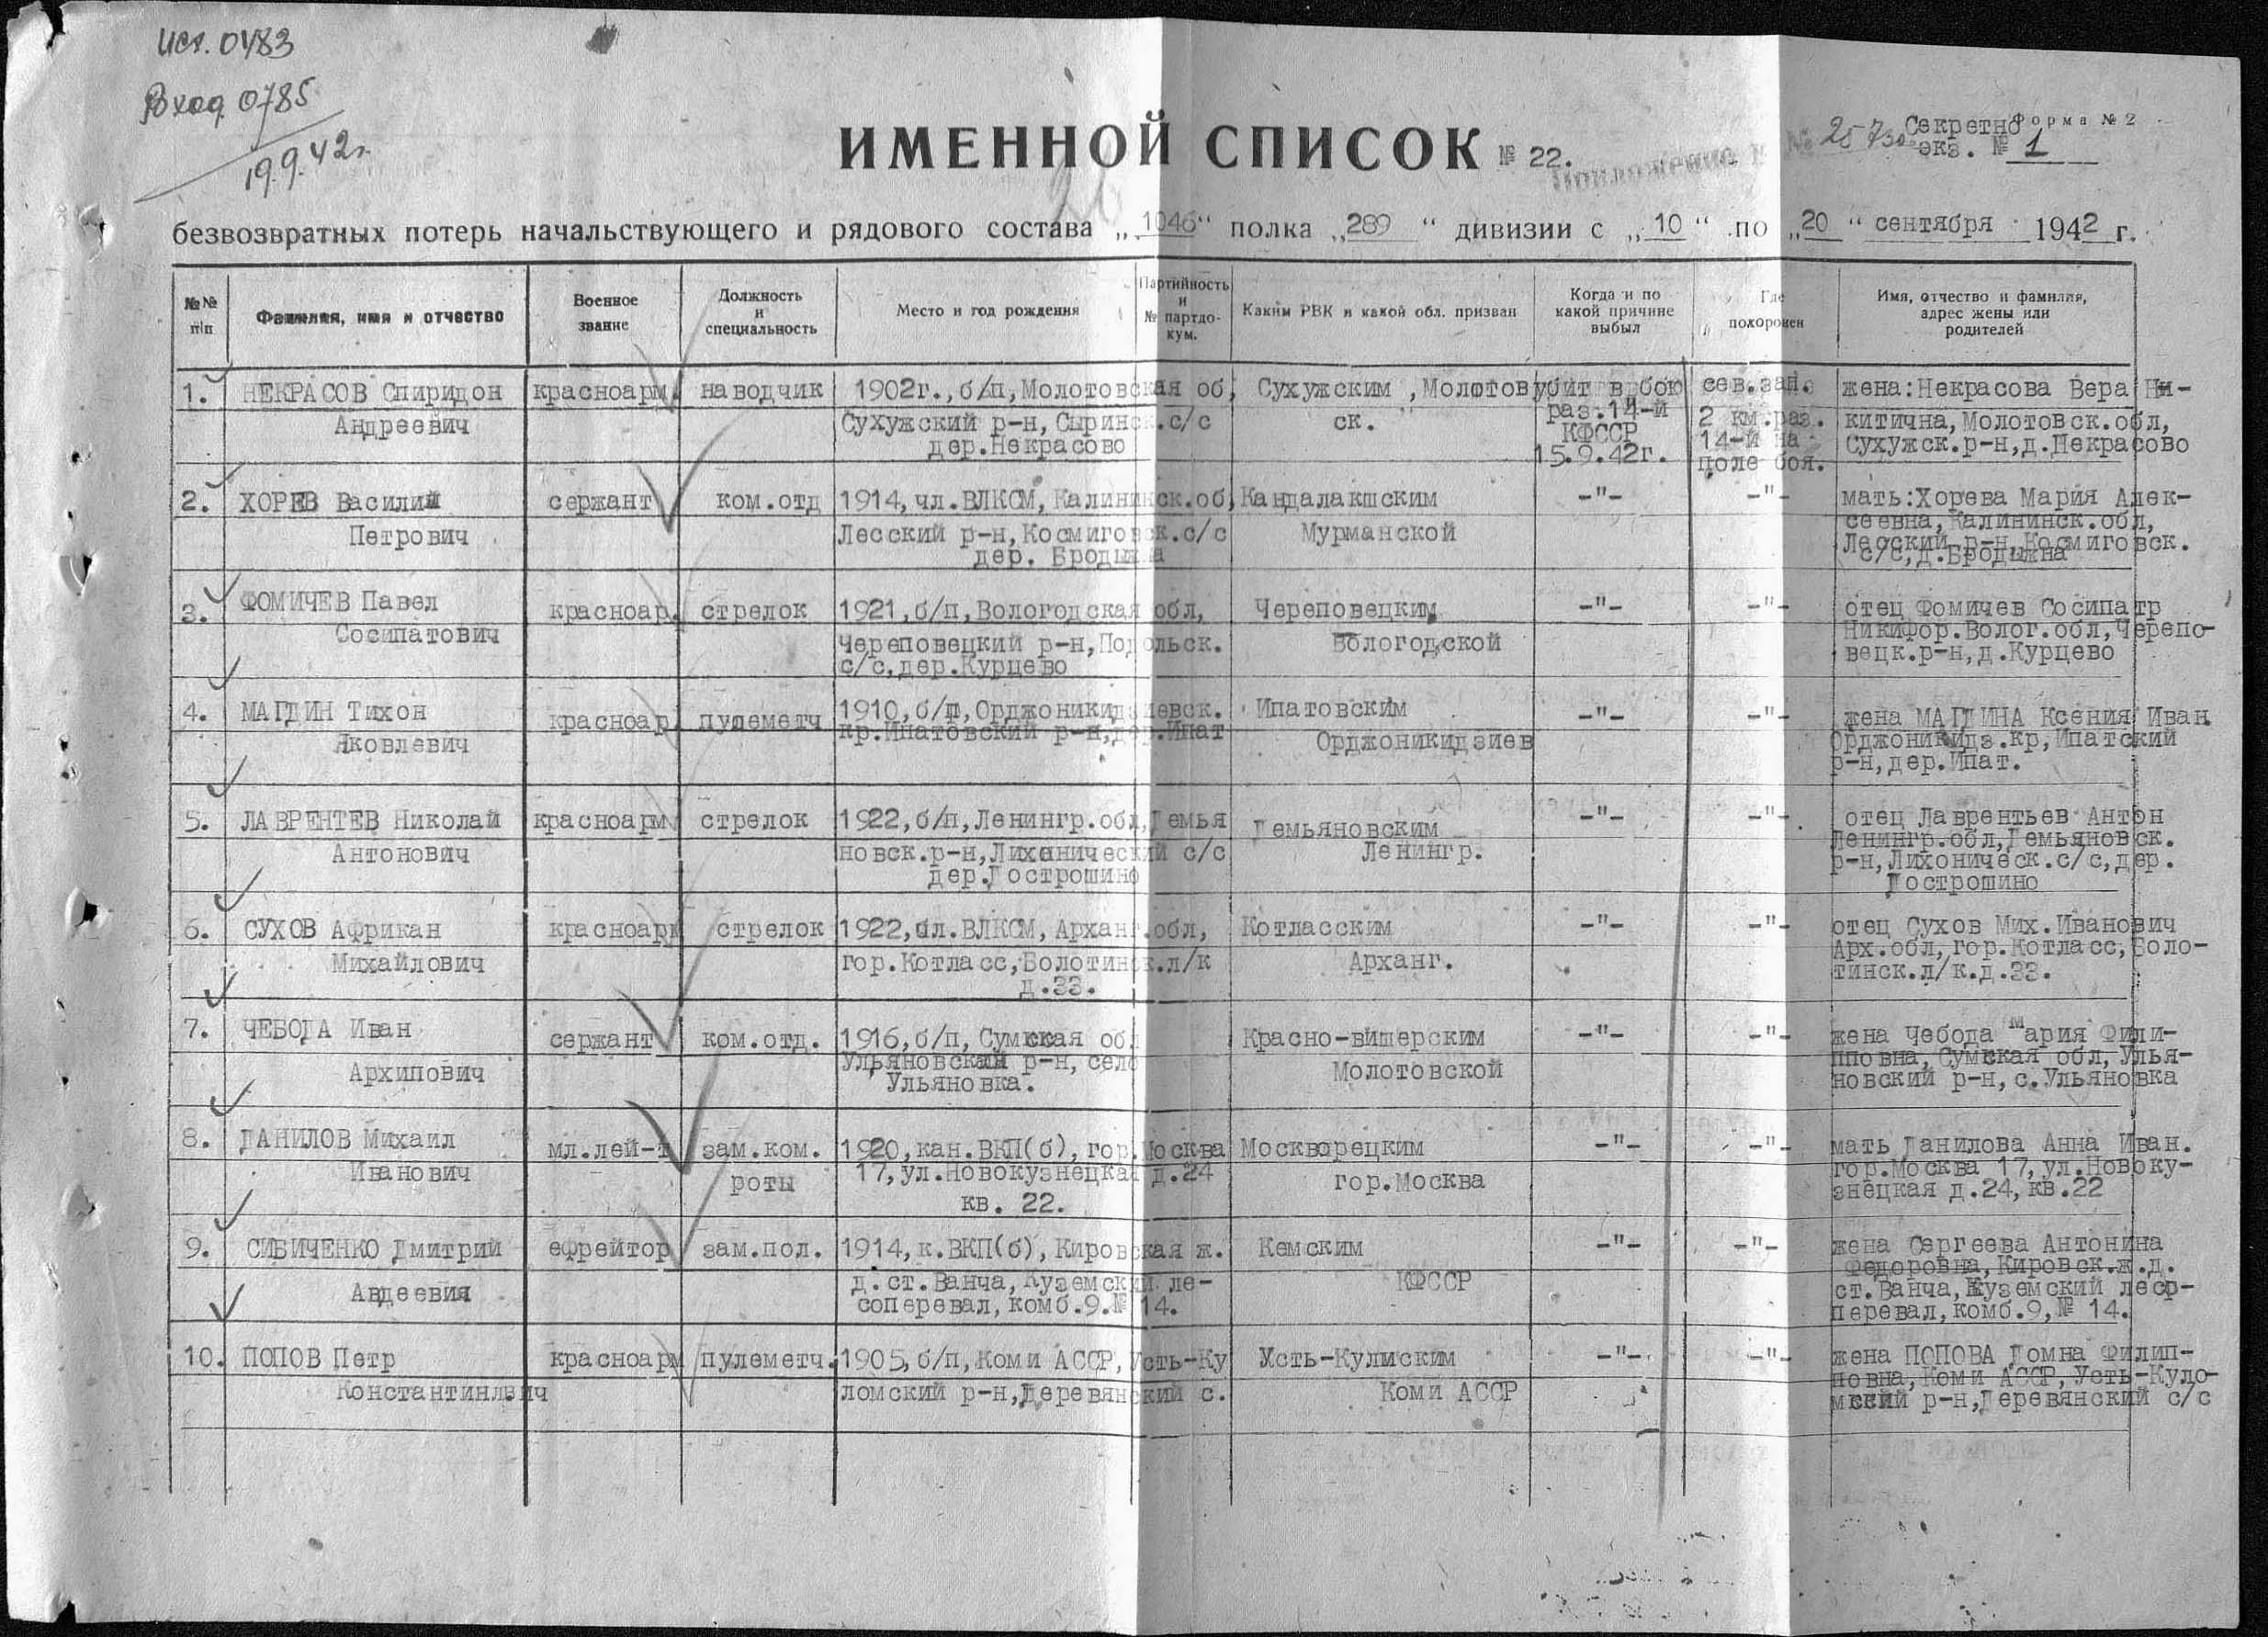 исх. 0483
Вход 0785
19.9.42г.
Форма № 2
Секретно
экз. № 1
№ 25730
ИМЕННОЙ СПИСОК № 22.
Приложение к
безвозвратных потерь начальствующего и рядового состава „1046“ полка „289“ дивизии с „10“ по „20“ сентября 1942 г.
№№ п/п
Фамилия, имя и отчество
Военное звание
Должность и специальность
Место и год рождения
Партийность и № партдокум.
Каким РВК и какой обл. призван
Когда и по какой причине выбыл
Где похоронен
Имя, отчество и фамилия, адрес жены или родителей
1. НЕКРАСОВ Спиридон красноарм. наводчик 1902г.,б/п,Молотовская об, Сухужским ,Молотов убит в бою сев.зап. жена:Некрасова Вера Ни-
Андреевич Сухужский р-н,Сыринск.с/с ск. раз.14-й 2 км.раз. китична,Молотовск.обл,
дер.Некрасово КФССР 14-й на Сухужск.р-н,д.Некрасово
15.9.42г. поле боя.
2. ХОРЕВ Василий сержант ком.отд 1914,чл.ВЛКСМ,Калининск.об, Кандалакшским -"- -"- мать:Хорева Мария Алек-
Петрович Лесский р-н,Космиговск.с/с Мурманской сеевна,Калининск.обл,
дер. Бродыжна Лесский р-н,Космиговск.
с/с,д.Бродыжна
3. ФОМИЧЕВ Павел красноар. стрелок 1921,б/п,Вологодская обл, Череповецким -"- -"- отец Фомичев Сосипатр
Сосипатович Череповецкий р-н,Подольск. Вологодской Никифор.Волог.обл,Черепо-
с/с,дер.Курцево вецк.р-н,д.Курцево
4. МАГДИН Тихон красноар. пулеметч 1910,б/п,Орджоникидзиевск. Ипатовским -"- -"- жена МАГДИНА Ксения Иван
Яковлевич кр.Ипатовский р-н,дер.Ипат Орджоникидзиев Орджоникидз.кр,Ипатский
р-н,дер.Ипат.
5. ЛАВРЕНТЕВ Николай красноарм стрелок 1922,б/п,Ленингр.обл,Демья Демьяновским -"- -"- отец Лаврентьев Антон
Антонович новск.р-н,Лихонический с/с Ленингр. Ленингр.обл,Демьяновск.
дер.Дострошино р-н,Лихоническ.с/с,дер.
Дострошино
6. СУХОВ Африкан красноарм стрелок 1922,чл.ВЛКСМ,Арханг.обл, Котласским -"- -"- отец Сухов Мих.Иванович
Михайлович гор.Котласс,Болотинск.л/к Арханг. Арх.обл,гор.Котласс,Боло-
д.33. тинск.л/к.д.33.
7. ЧЕБОДА Иван сержант ком.отд. 1916,б/п,Сумская обл Красно-вишерским -"- -"- жена Чебода Мария Фили-
Архипович Ульяновский р-н,село Молотовской пповна,Сумская обл,Улья-
Ульяновка. новский р-н,с.Ульяновка
8. ДАНИЛОВ Михаил мл.лей-т зам.ком. 1920,кан.ВКП(б),гор.Москва Москворецким -"- -"- мать Данилова Анна Иван.
Иванович роты 17,ул.Новокузнецкая д.24 гор.Москва гор.Москва 17,ул.Новоку-
кв. 22. знецкая д.24,кв.22
9. СИБИЧЕНКО Дмитрий ефрейтор зам.пол. 1914,к.ВКП(б),Кировская ж. Кемским -"- -"- жена Сергеева Антонина
Авдеевич д.ст.Ванча,Куземский ле- КФССР Федоровна,Кировск.ж.д.
соперевал,комб.9.№ 14. ст.Ванча,Куземский леср-
перевал,комб.9,№ 14.
10. ПОПОВ Петр красноарм пулеметч. 1905,б/п,Коми АССР,Усть-Ку Усть-Кулмским -"- -"- жена ПОПОВА Домна Филип-
Константинлвич ломский р-н,Деревянский с. Коми АССР повна,Коми АССР,Усть-Куло-
мский р-н,Деревянский с/с